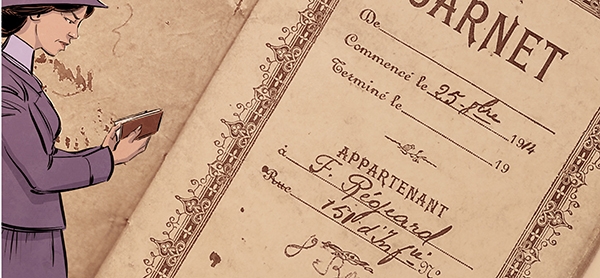 CARNET
De
Commencé le 25 9bre 1914
Terminé le 19
APPARTENANT
à F. Régeard
Rue 151e d'Inf